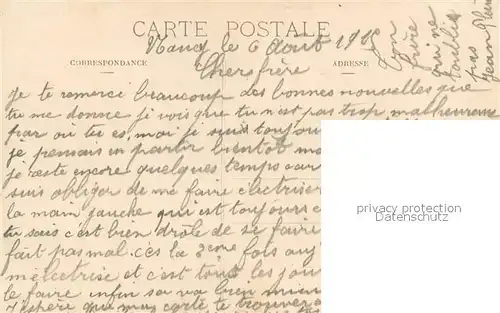 CARTE POSTALE
Nancy le 6 Août 191
CORRESPONDANCE
ADRESSE
Cher frère
Je te remerci beaucoup des bonnes nouvelles que
tu me donne je vois que tu n'est pas trop malheureux
par ou tu es, moi je suis toujour
je pensais un partir bientot
je reste encore quelques temps car
suis obliger de me faire électriser
la main gauche qui est toujours
tu sais c'est bien drôle de se faire
fait pas mal. c'es la 2eme fois
m'electrise et c'est tous les jou
le faire infin sa va bien
J'espère que ma carte te trouvera
Ton
frère
qui ne
t'oublie
pas
Jean
privacy protection
Datenschutz